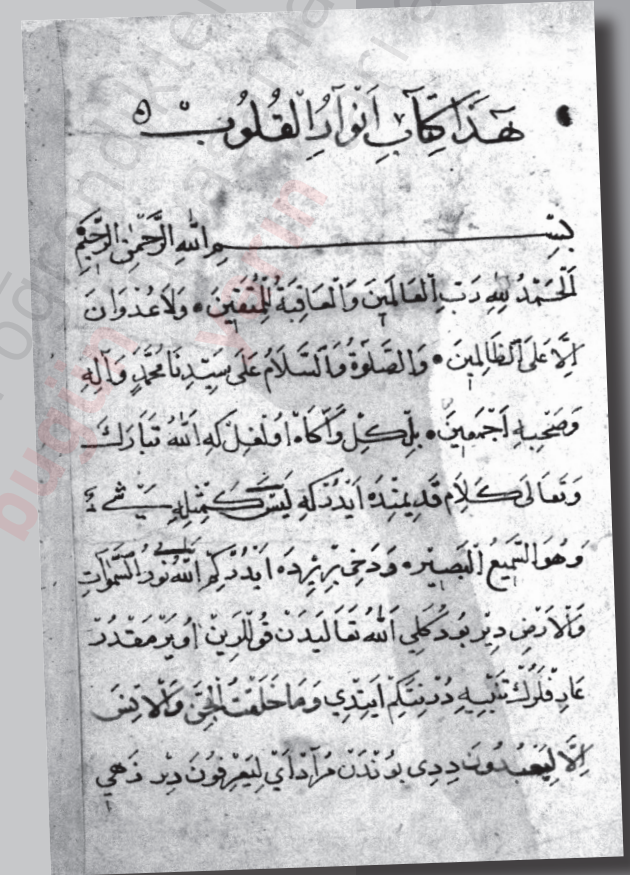 هَذَا كِتَابِ اَنْوَارُ الْقُلُوبْ
بِسْمِ اللهِ الرَّحْمٰنِ الرَّحِيمِ
اَلْحَمْدُ لِلّٰهِ رَبِّ الْعَالَمِينَ وَالْعَاقِبَةُ لِلْمُتَّقِينَ • وَلَا عُدْوَانَ
اِلَّا عَلَى الظَّالِمِينَ • وَالصَّلٰوةُ وَالسَّلَامُ عَلَى سَيِّدِنَا مُحَمَّدٍ وَآلِهِ
وَصَحْبِهِ اَجْمَعِينَ • بِلْكِلْ وَآكَاهْ اُولْغِلْ كَهِ اَللهُ تَبَارَكَ
وَتَعَالَى كَلَامِ قَدِيمِنْدَه اَيْدُرْكَهِ لَيْسَ كَمِثْلِهِ شَيْءٌ
وَهُوَ السَّمِيعُ الْبَصِيرُ • وَدَخِى بِرْيِرْدَه اَيْدُرْكِمْ اَللهُ نُورُ السَّمٰوَاتِ
وَالْاَرْضِ دِيرْ بُو دَكْلِي اَللهُ تَعَالَيدَنْ قُولْلَرِينْ
عَارِفْلَرُكْ تَنْبِيهِ دُرْ نِتَكِمْ اَيتْدِي وَمَا خَلَقْتُ الْجِنَّ وَالْاِنْسَ
اِلَّا لِيَعْبُدُونَ دِدِى بُونْدَنْ مُرَادْ اَيْ لِيَعْرِفُونَ دِرْ
bugün yarın